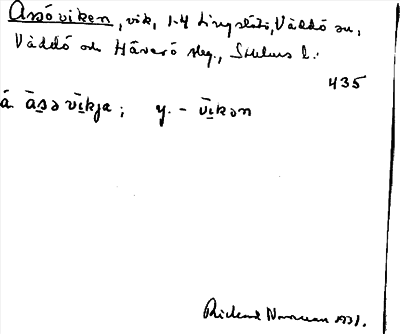 Assöviken, vik, 1-4 Tingslätö, Väddö sn,
Väddö och Häverö slg., Sthlms l.
435
å ās̱ə vīkja; y. - vīkən
Rickard Norrman 1931.